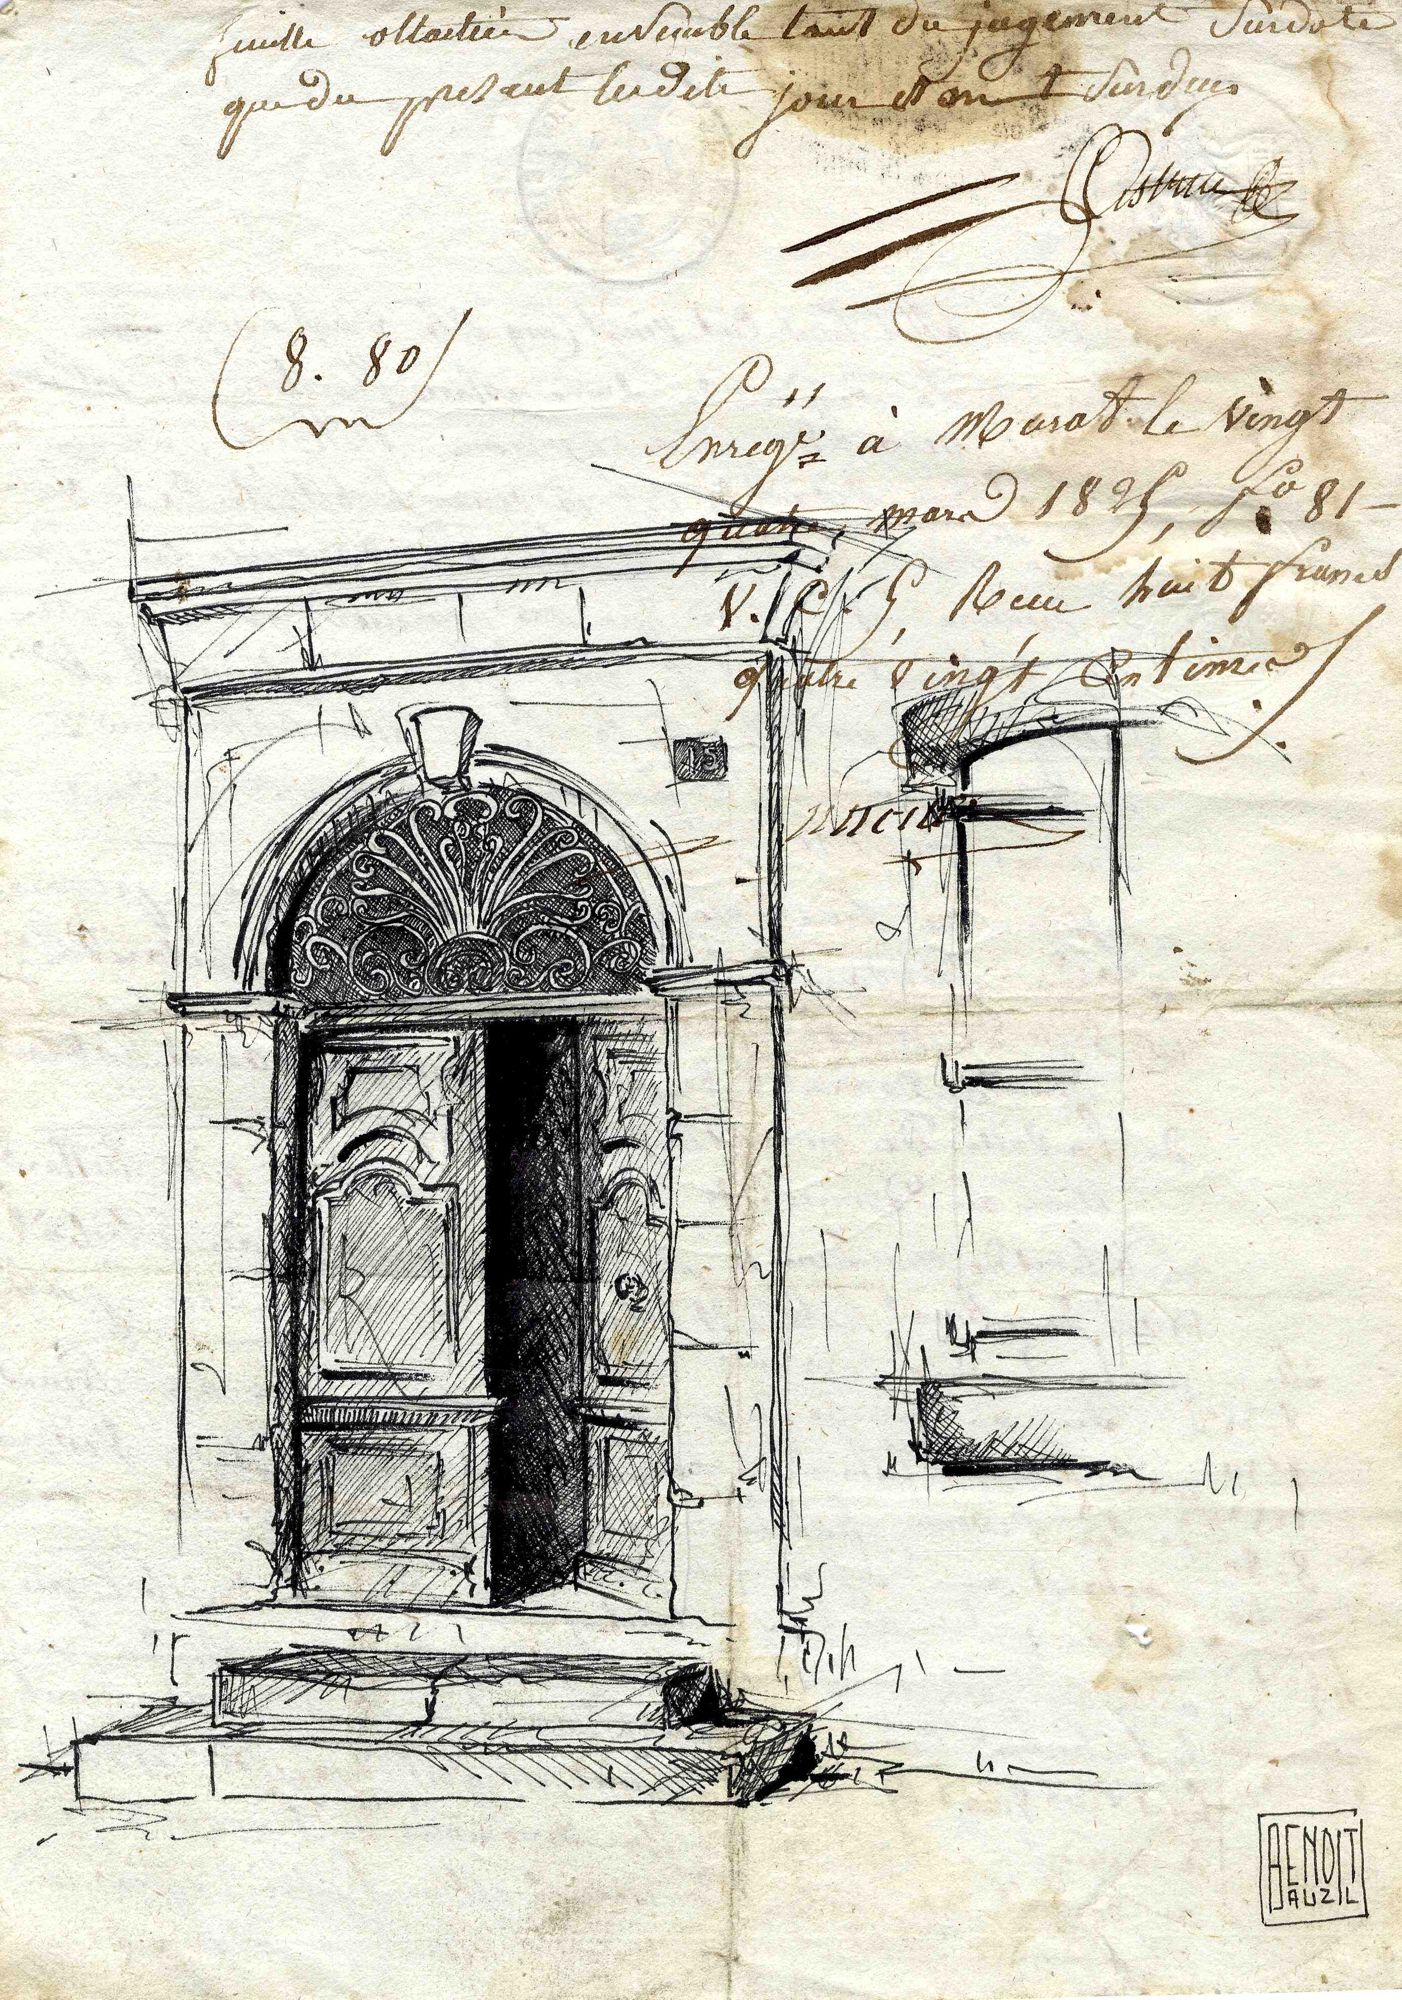 ensemble tant du jugement Surdate
que du présent lesdits jour et an Surdits
(8. 80)
Enreg.é à Murat le vingt
quatre mars 1825, fo 81
V. C. 5, Recu huit francs
quatre vingt Centimes
15
BENOIT
AUZIL